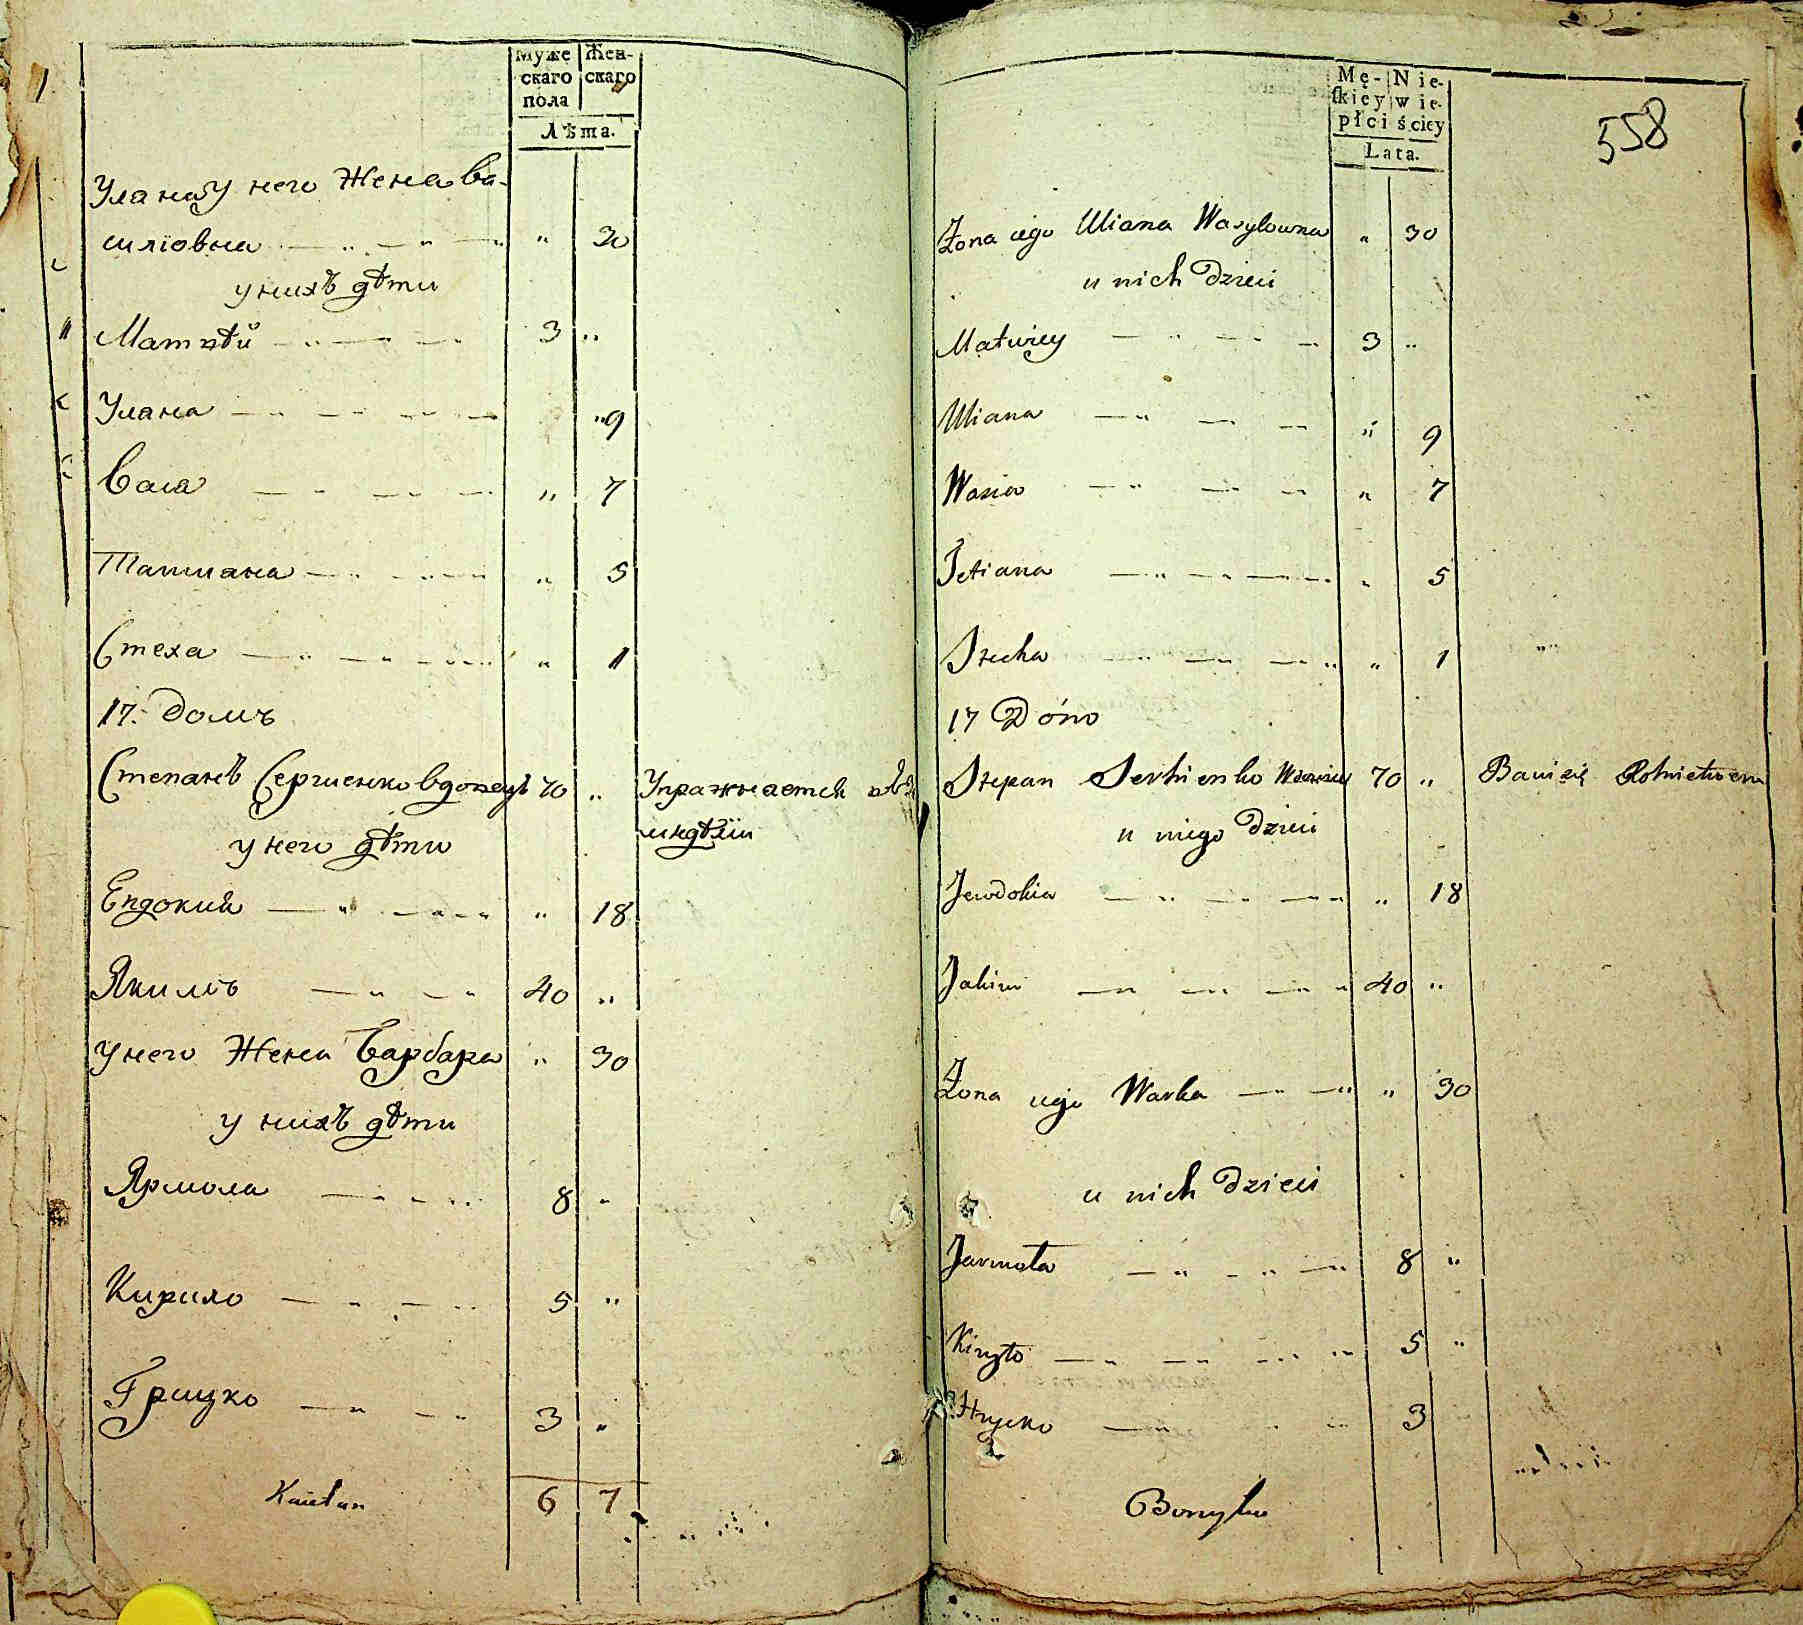 Муже Жен-
скаго скаго
пола
Лѣта.
Улана У него Жена Ва-
силіовна 〃 30
у нихъ дѣти
Матвѣй 3 〃
Улана 〃 9
Вася 〃 7
Татиана 〃 5
Стеха 〃 1
17. Домъ
Степанъ Сергиенко вдовецъ 70 〃 Упражняется
у него дѣти
Евдокия 〃 18
Якимъ 40 〃
У него Жена Варвара 〃 30
у нихъ дѣти
Ярмола 8 〃
Кирило 5 〃
Грицко 3 〃
Kaietan 6 7
558
Mę- Nie-
ſkiey wie-
płci ściey
Lata.
Żona iego Uliana Wasylowna 〃 30
u nich Dzieci
Matwiey 3 〃
Uliana 〃 9
Wasia 〃 7
Tetiana 〃 5
Stecha 〃 1
17 Dóm
Stepan Serhienko Wdowiec 70 〃 Bawi się Rolnictwem
u niego Dzieci
Jewdokia 〃 18
Jakim 40 〃
Żona iego Warka 〃 30
u nich Dzieci
Jarmoła 8 〃
Kiryło 5 〃
Hrycko 3